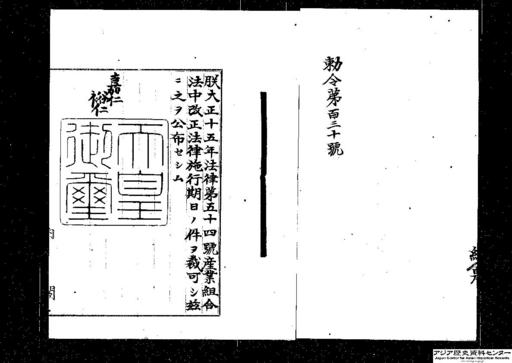 勅令第百三十號
朕大正十五年法律第五十四號産業組合
法中改正法律施行期日ノ件ヲ裁可シ茲
ニ之ヲ公布セシム
嘉仁
裕仁
天皇
御璽
内閣
アジア歴史資料センター
Japan Center for Asian Historical Records